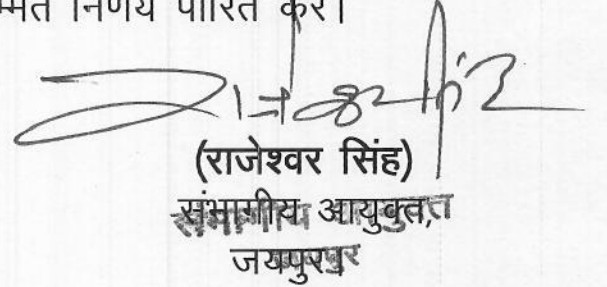 निर्णय पारित करें।
(राजेश्वर सिंह)
संभागीय आयुक्त,
जयपुर